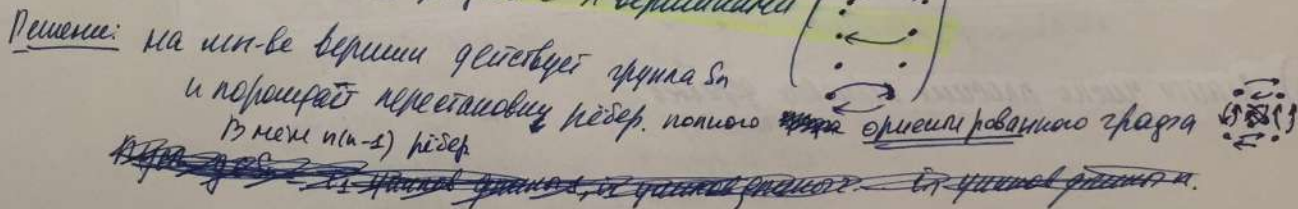 с n вершинами
Решение: на мн-ве вершин действует группа Sn
и порождает перестановку рёбер. полного ориентированного графа
В нём n(n-1) рёбер